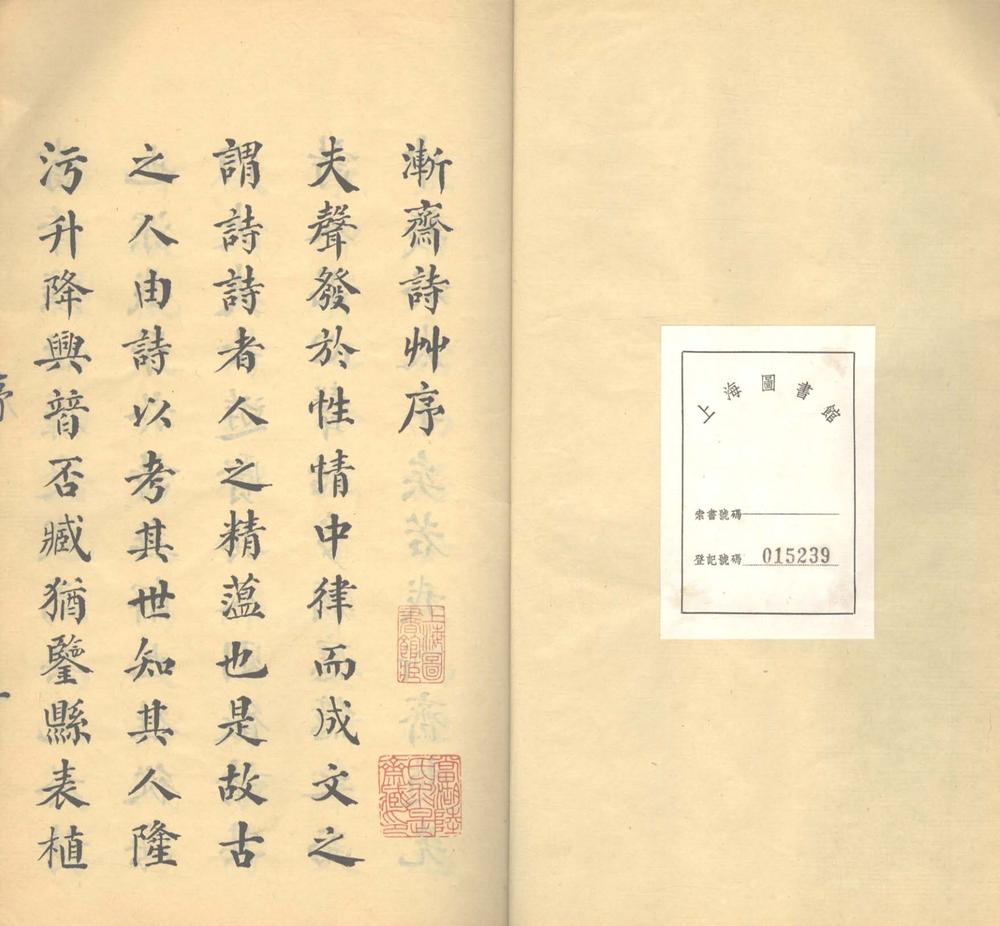 上海圖書館
索書號碼
登記號碼 015239
漸齋詩艸序
上海圖
書館藏
當湖陸
氏求是
齋藏印
夫聲發於性情中律而成文之
謂詩詩者人之精薀也是故古
之人由詩以考其世知其人隆
污升降興朁否臧猶鑒縣表植
序